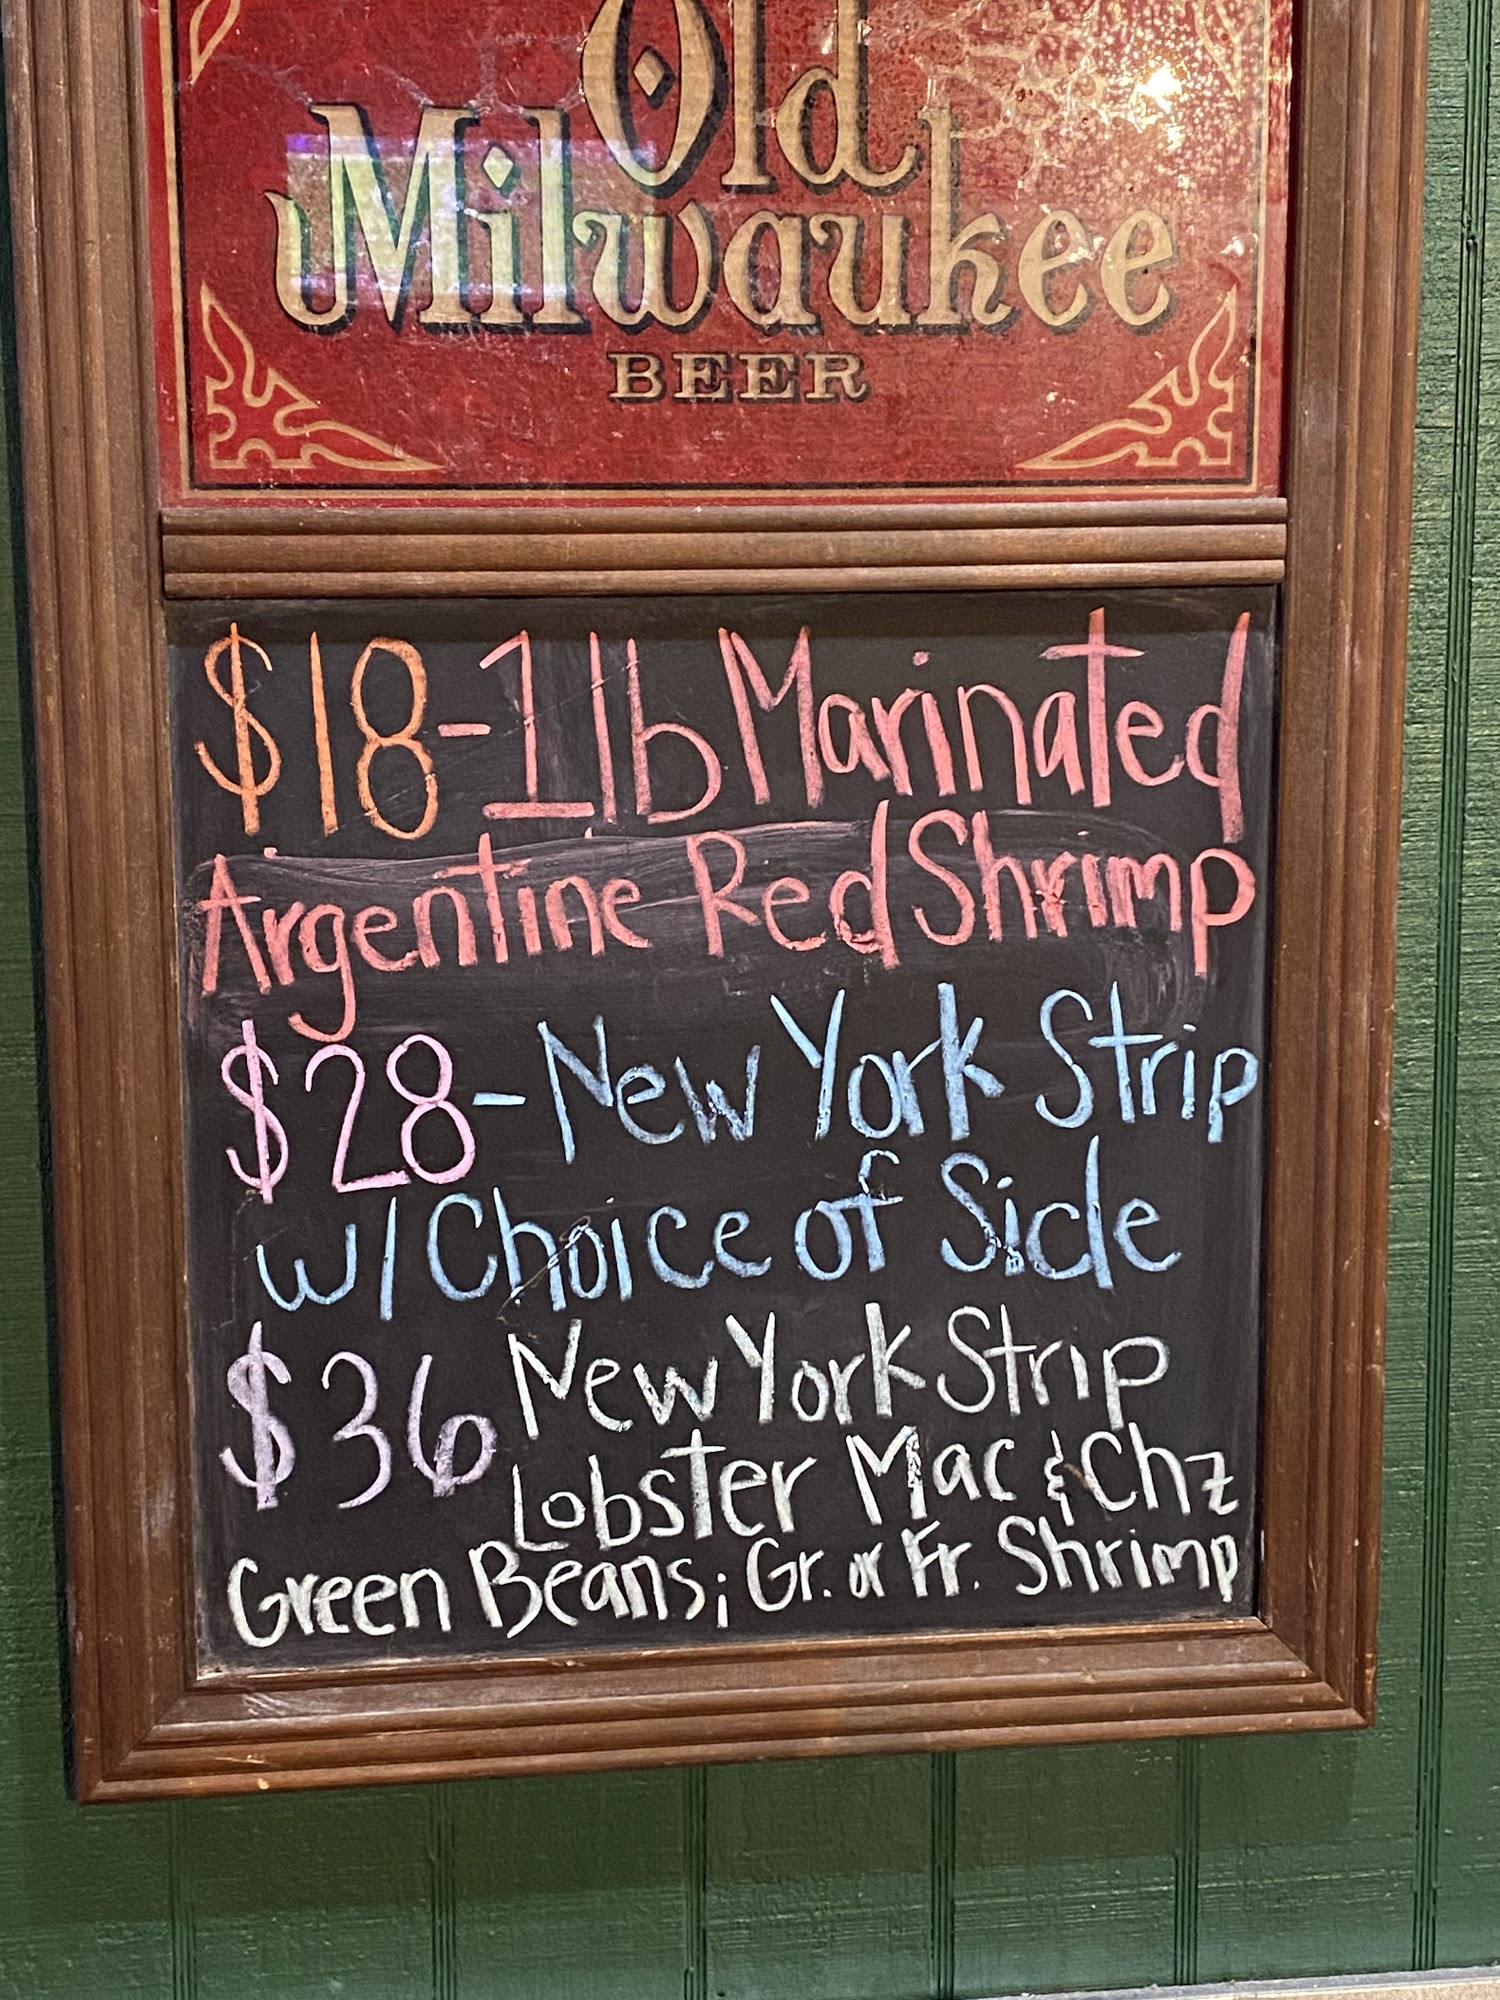 Old
Milwaukee
BEER
$18-1lb Marinated
Argentine Red Shrimp
$28-New York Strip
w/Choice of Side
$36 New York Strip
Lobster Mac & Chz
Green Beans; Gr. or Fr. Shrimp